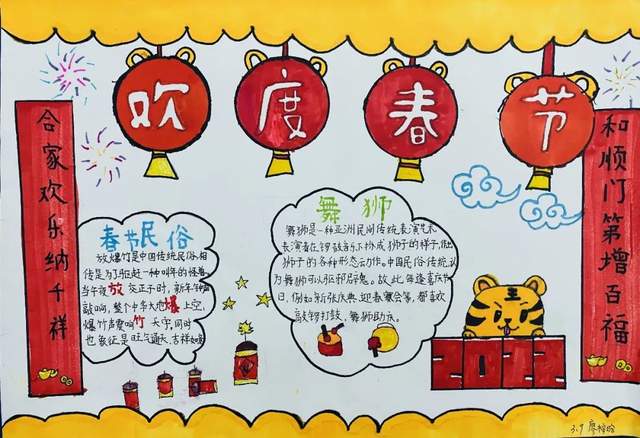 欢度春节
合家欢乐纳千祥
和顺门第增百福
春节民俗
放爆竹是中国传统民俗,相
传是为了驱赶一种叫年的怪兽。
当午夜放交正子时,新年钟声
敲响,整个中华大地爆上空,
爆竹声震响竹天宇,同时
也象征是旺气通天,吉祥如意
舞狮
舞狮是一种亚洲民间传统表演艺术
表演者在锣鼓音乐下扮成狮子的样子,做
狮子的各种形态动作。中国民俗传统认
为舞狮可以驱邪辟鬼。故此每逢喜庆节
日,例如新张庆典、迎春赛会等,都喜欢
敲锣打鼓,舞狮助庆。
王
2022
3.9